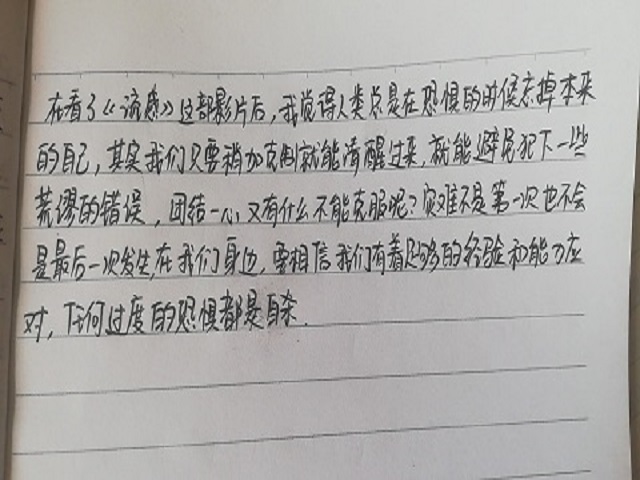 在看了《流感》这部影片后，我觉得人类总是在恐惧的时候忘掉本来
的自己，其实我们只要稍加克制就能清醒过来，就能避免犯下一些
荒谬的错误，团结一心又有什么不能克服呢？灾难不是第一次也不会
是最后一次发生在我们身边，要相信我们有着足够的经验和能力应
对，任何过度的恐惧都是自杀.